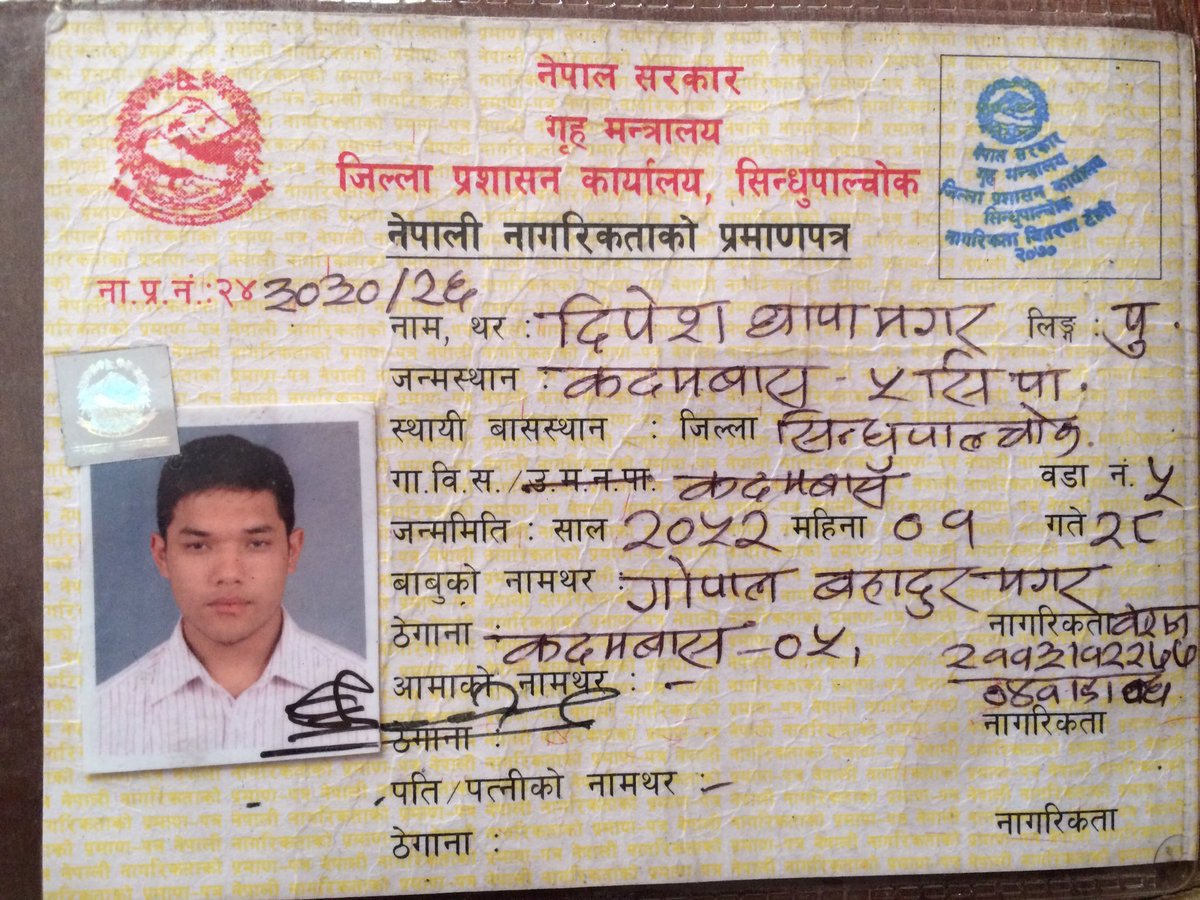 नेपाल सरकार
गृह मन्त्रालय
जिल्ला प्रशासन कार्यालय, सिन्धुपाल्चोक
नेपाली नागरिकताको प्रमाणपत्र
नेपाल सरकार
गृह मन्त्रालय
जिल्ला प्रशासन कार्यालय
सिन्धुपाल्चोक
नागरिकता वितरण टोली
२०७०
ना.प्र.नं.:२४३०३०/२६
नाम, थर : दिपेश थापा मगर लिङ्ग : पु.
जन्मस्थान : कदमबास - ५ सि पा.
स्थायी बासस्थान : जिल्ला सिन्धुपाल्चोक.
गा.वि.स./उ.म.न.पा. कदमबास वडा नं. ५
जन्ममिति : साल २०५२ महिना ०१ गते २८
बाबुको नामथर : गोपाल बहादुर मगर
ठेगाना : कदमबास - ०५, नागरिकता
आमाको नामथर : -
ठेगाना : नागरिकता
पति/पत्नीको नामथर :-
ठेगाना : नागरिकता